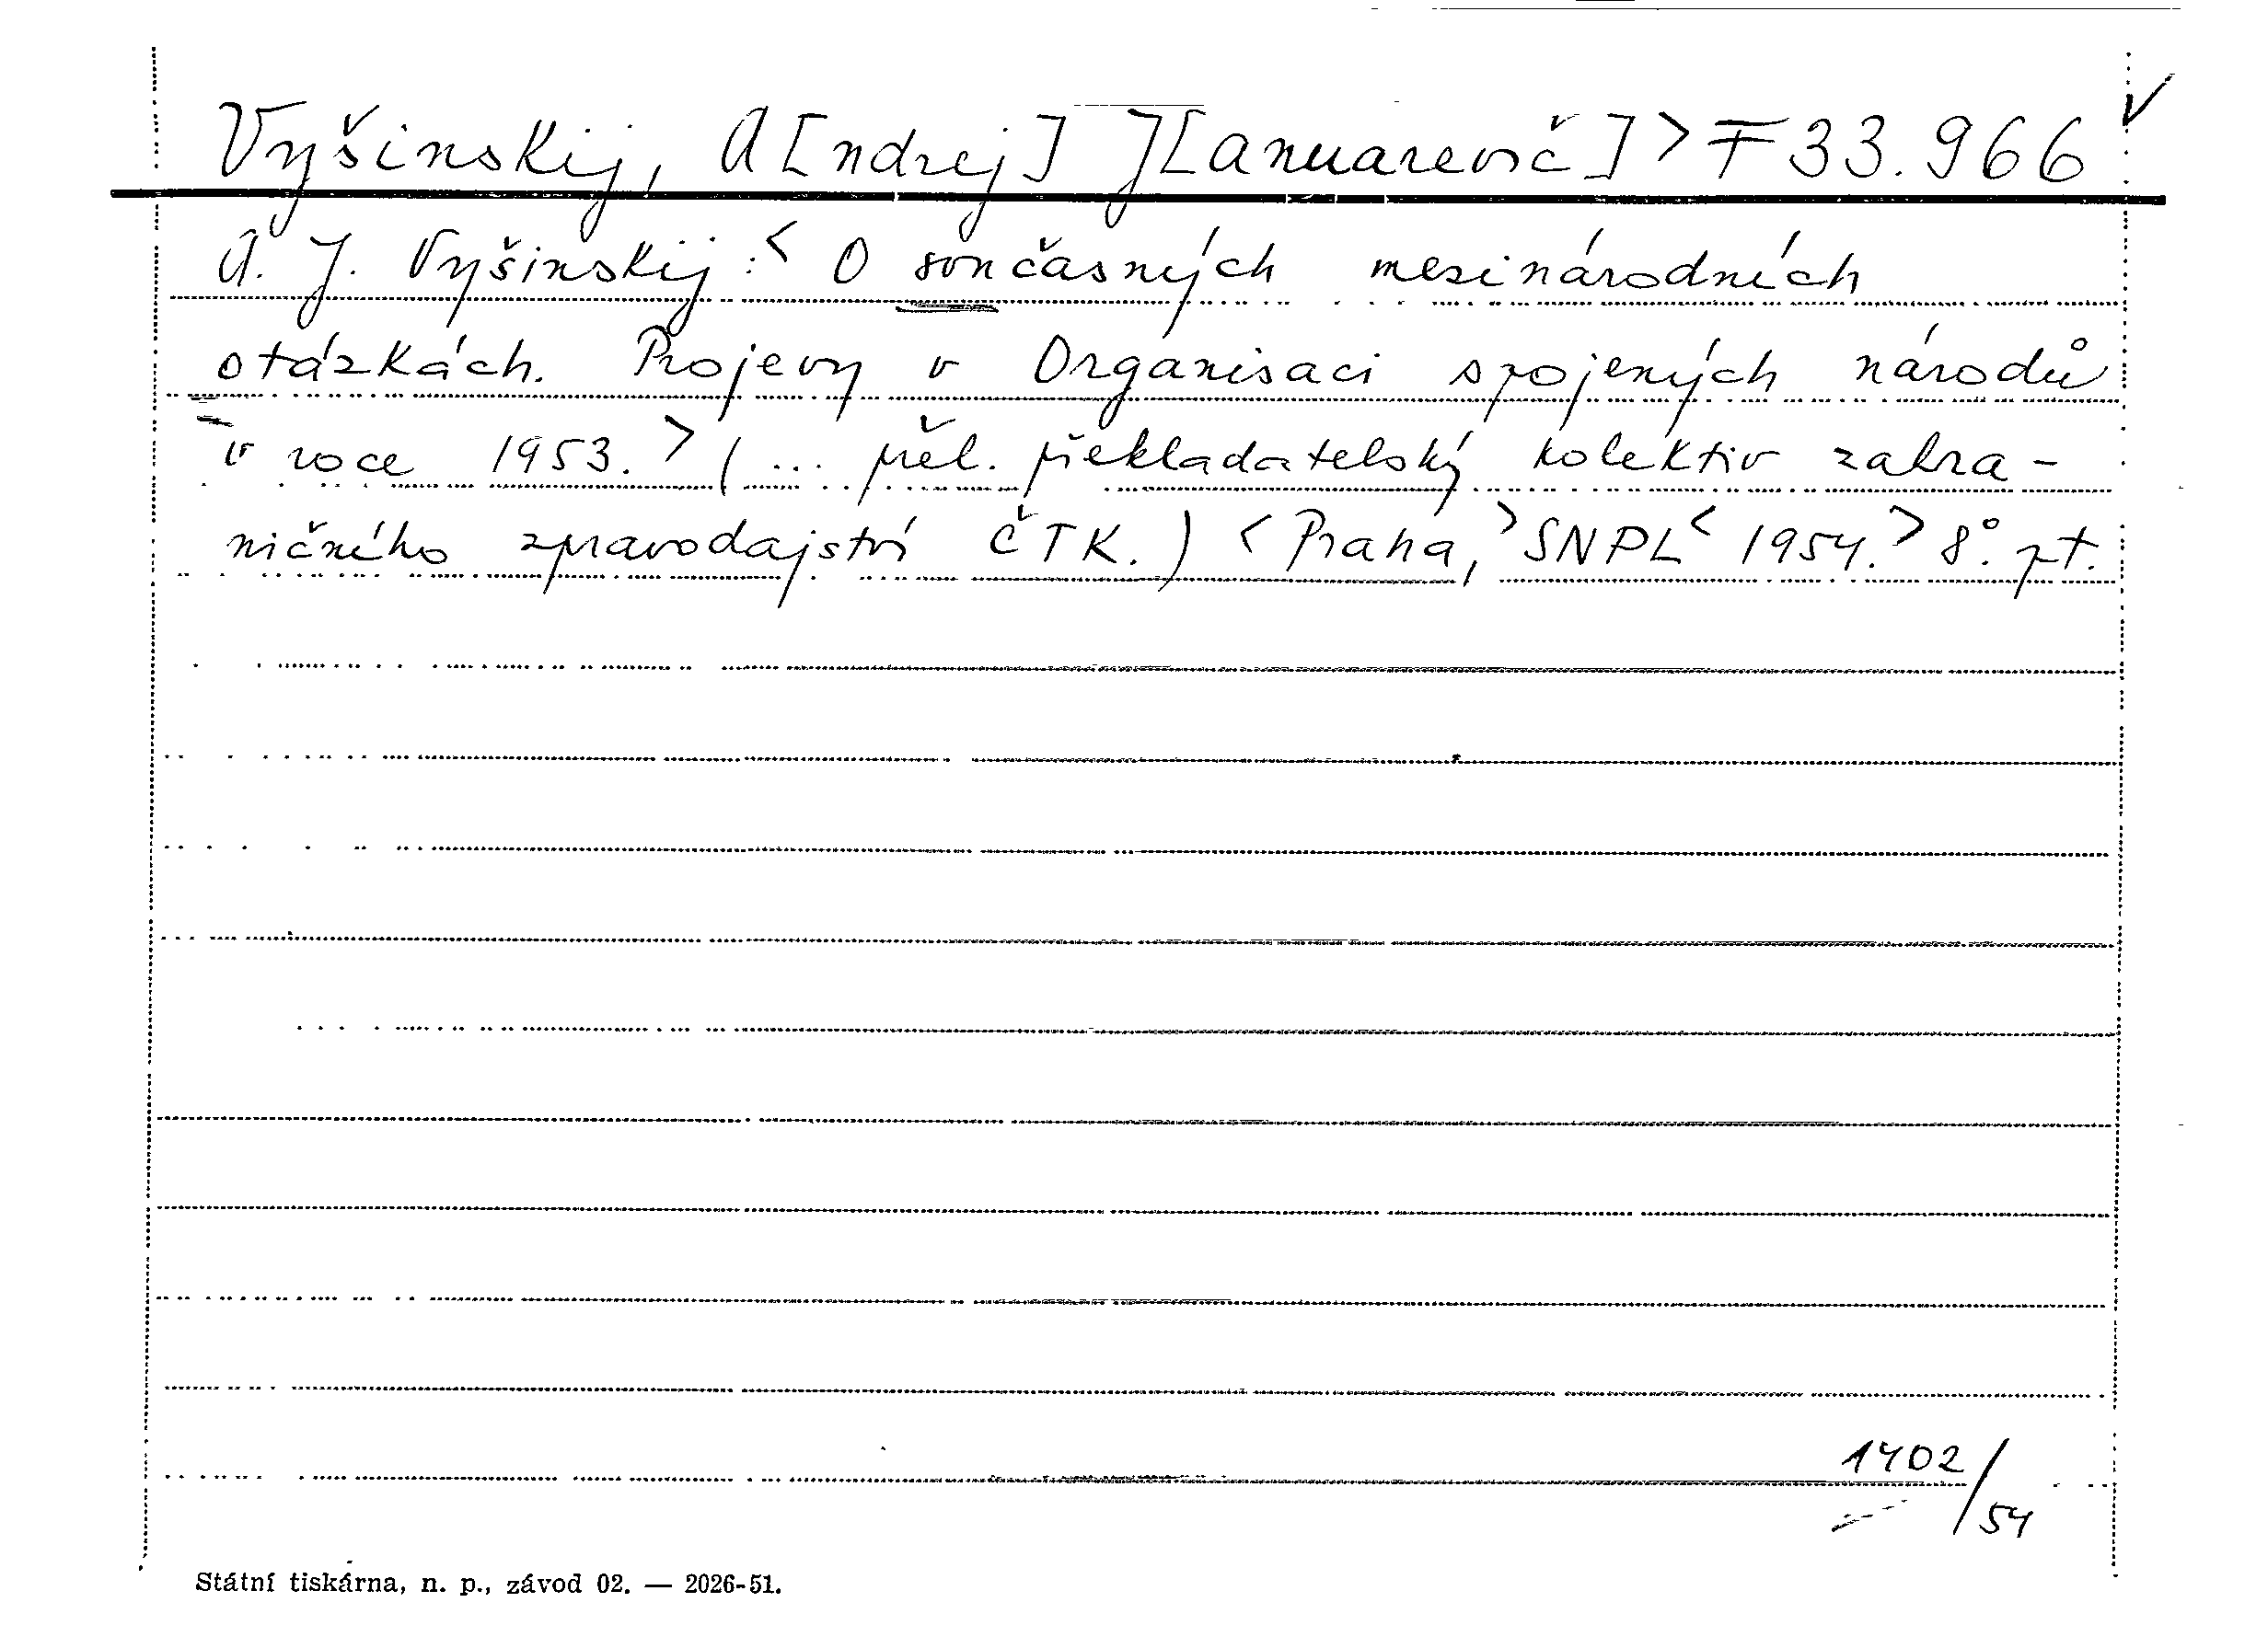 Vyšinskij, A[ndrej] J[anuarevič] > F 33.966
A. J. Vyšinskij :< O současných mezinárodních
otázkách. Projevy v Organisaci spojených národů
v roce 1953. > (... přel. překladatelský kolektiv zahra-
ničního zpravodajství ČTK.) < Praha, > SNPL < 1954. > 8°. pt.
1402/54
Státní tiskárna, n. p., závod 02. — 2026-51.